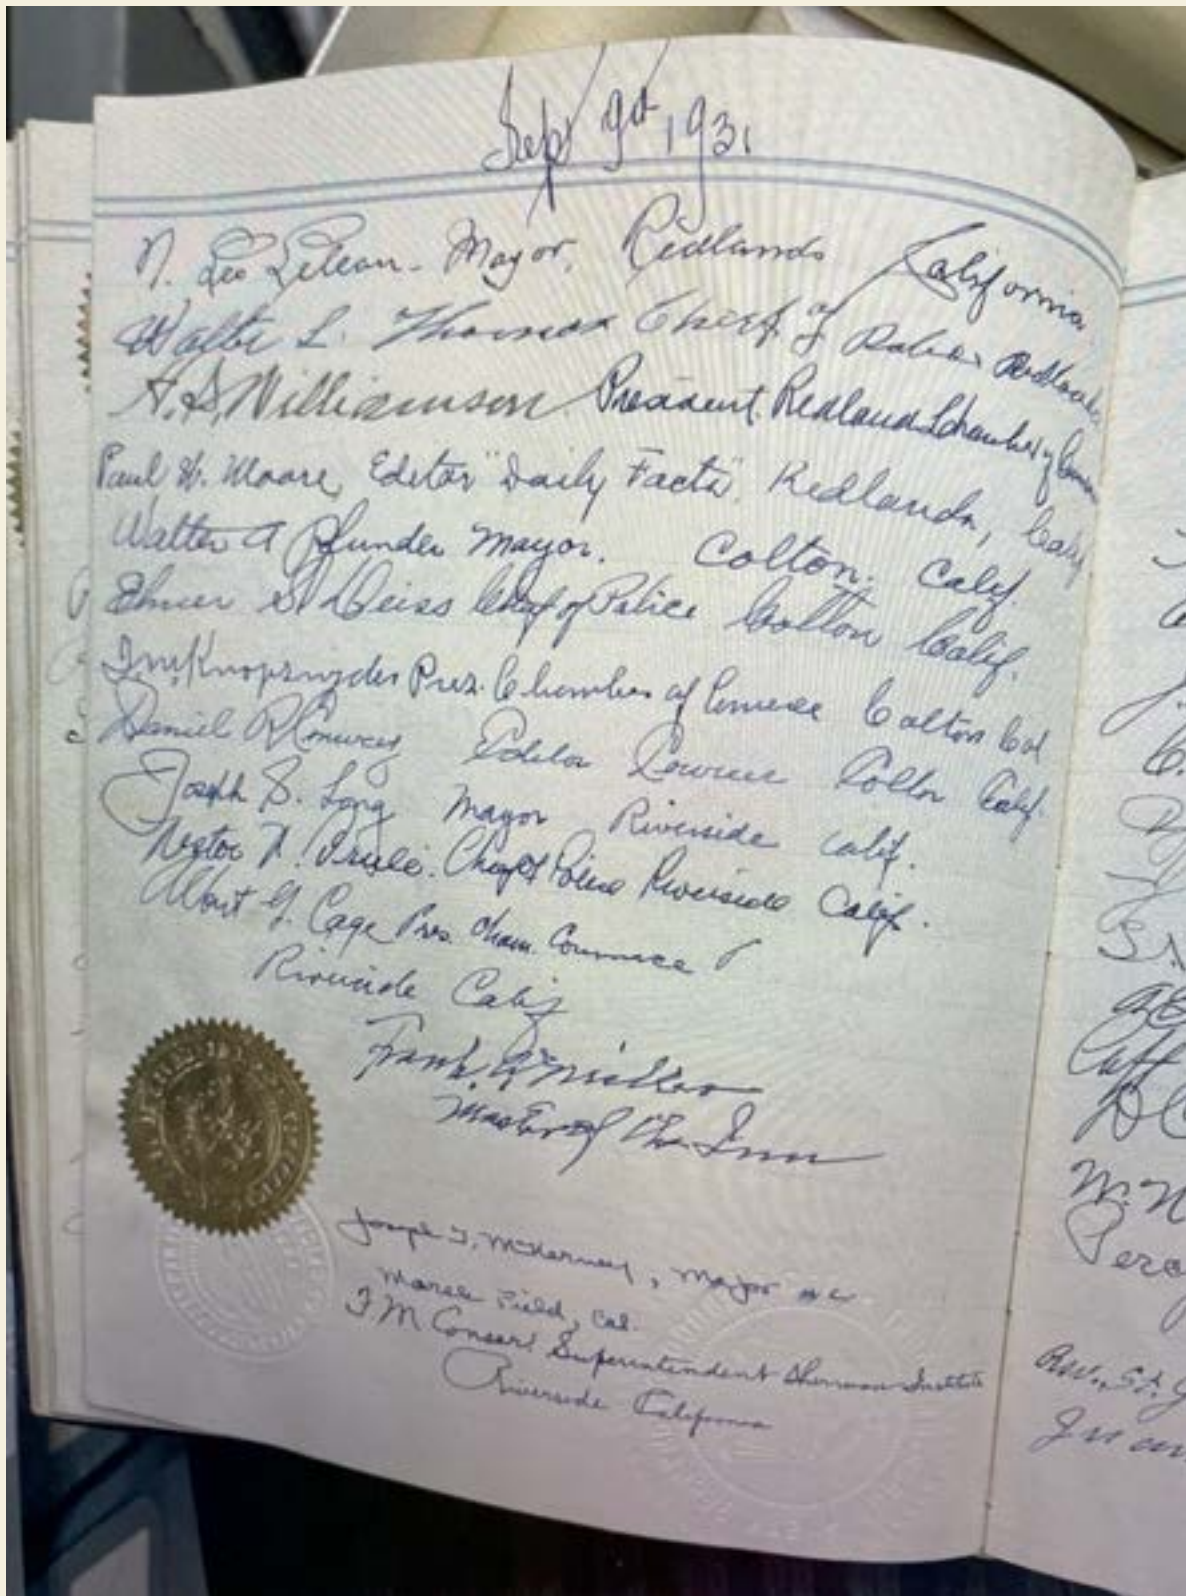 Sept 9th 1931
N. Leo Lelean - Mayor, Redlands California
Walter L. Thomas Chief of Police Redlands
A. S. Williamson President Redlands Chamber of
Paul W. Moore, Editor "Daily Facts", Redlands, Calif
Walter A Pfunder Mayor. Colton. Calif.
Elmer S Weiss Chief of Police Colton Calif.
Knopsnyder Pres. Chamber of Comerce Colton Cal
Daniel R Conway Editor Courier Colton Calif.
Joseph S. Long Mayor Riverside Calif.
Nestor Chief of Police Riverside Calif.
Albert G. Cage Pres. Cham. Commerce
Riverside Calif
Frank A Miller
Master of the Inn
Joseph T. McNarney, Major A C
March Field, Cal.
F M Conser Superintendent Sherman Institute
Riverside California
W. N
Perc
Rev., St. J